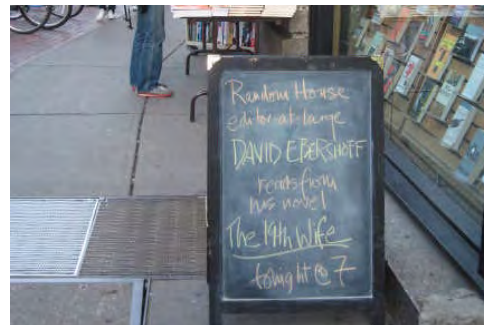 Random House
editor-at-large
DAVID EBERSHOFF
reads from
his novel
The 19th Wife
tonight @ 7